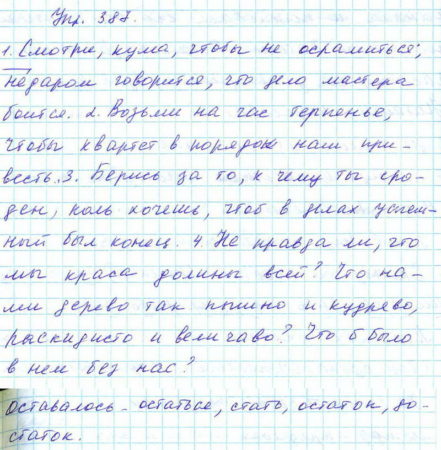 Упр. 387.
1. Смотри, кума, чтобы не осрамиться;
недаром говорится, что дело мастера
боится. 2. Возьми на час терпенье,
чтобы квартет в порядок наш при-
весть. 3. Берись за то, к чему ты сро-
ден, коль хочешь, чтоб в делах успеш-
ный был конец. 4. Не правда ли, что
мы краса долины всей? Что на-
ми дерево так пышно и кудряво,
раскидисто и величаво? Что б было
в нем без нас?
оставалось - остаться, стать, остаток, до-
статок.